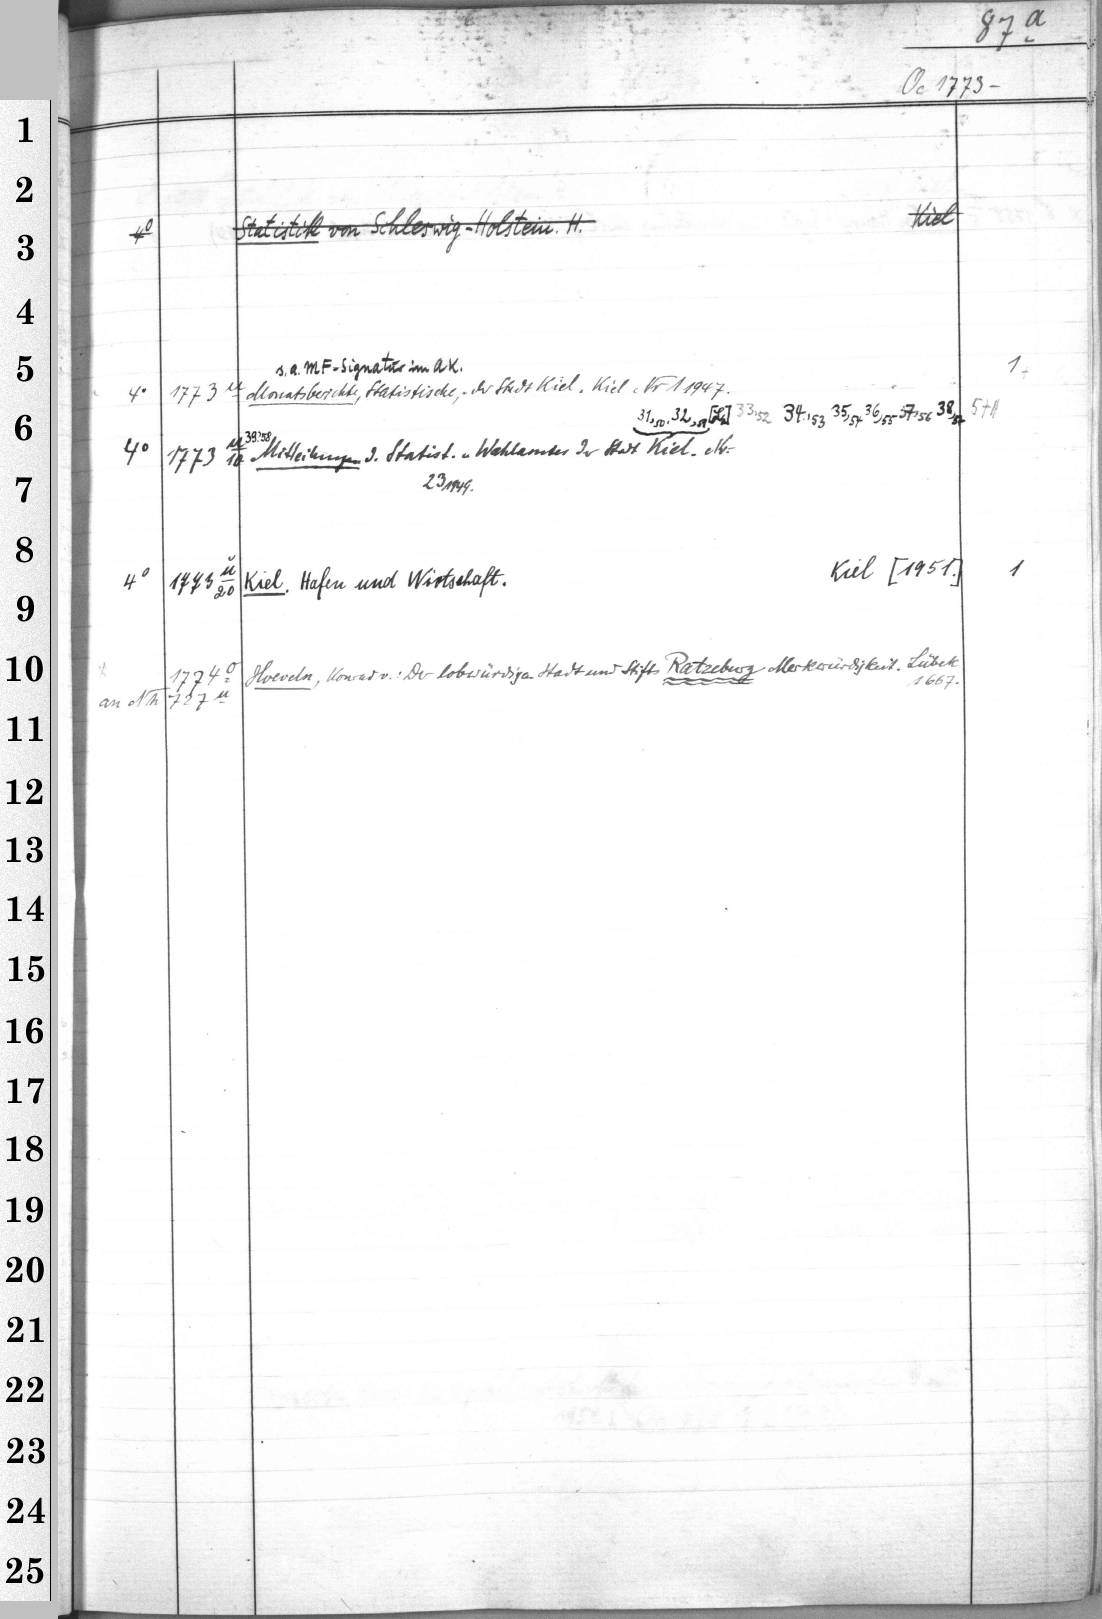 87 a
Oc 1773-
1
2
4° Statistik von Schleswig-Holstein. H. Kiel
3
4
s. a. MF-Signatur im AK.
5
1
4° 1773 u Monatsberichte, Statistische, der Stadt Kiel. Kiel Nr 1 1947.
31,50. 32,51 33,52 34,53 35,54 36,55 37,56 38,57
6
39,58
4° 1773 u/10 Mitteilungen d. Statist. u Wahlamtes der Stadt Kiel. Nr.
23,1949.
7
8
4° 1773 u/20 Kiel. Hafen und Wirtschaft. Kiel [1951.] 1
9
10
1774 Hoeveln, Konrad v.: Der lobwürdigen Stadt und Stifts Ratzeburg Merkwürdigkeit. Lübek
1667.
an Nh 727 u
11
12
13
14
15
16
17
18
19
20
21
22
23
24
25